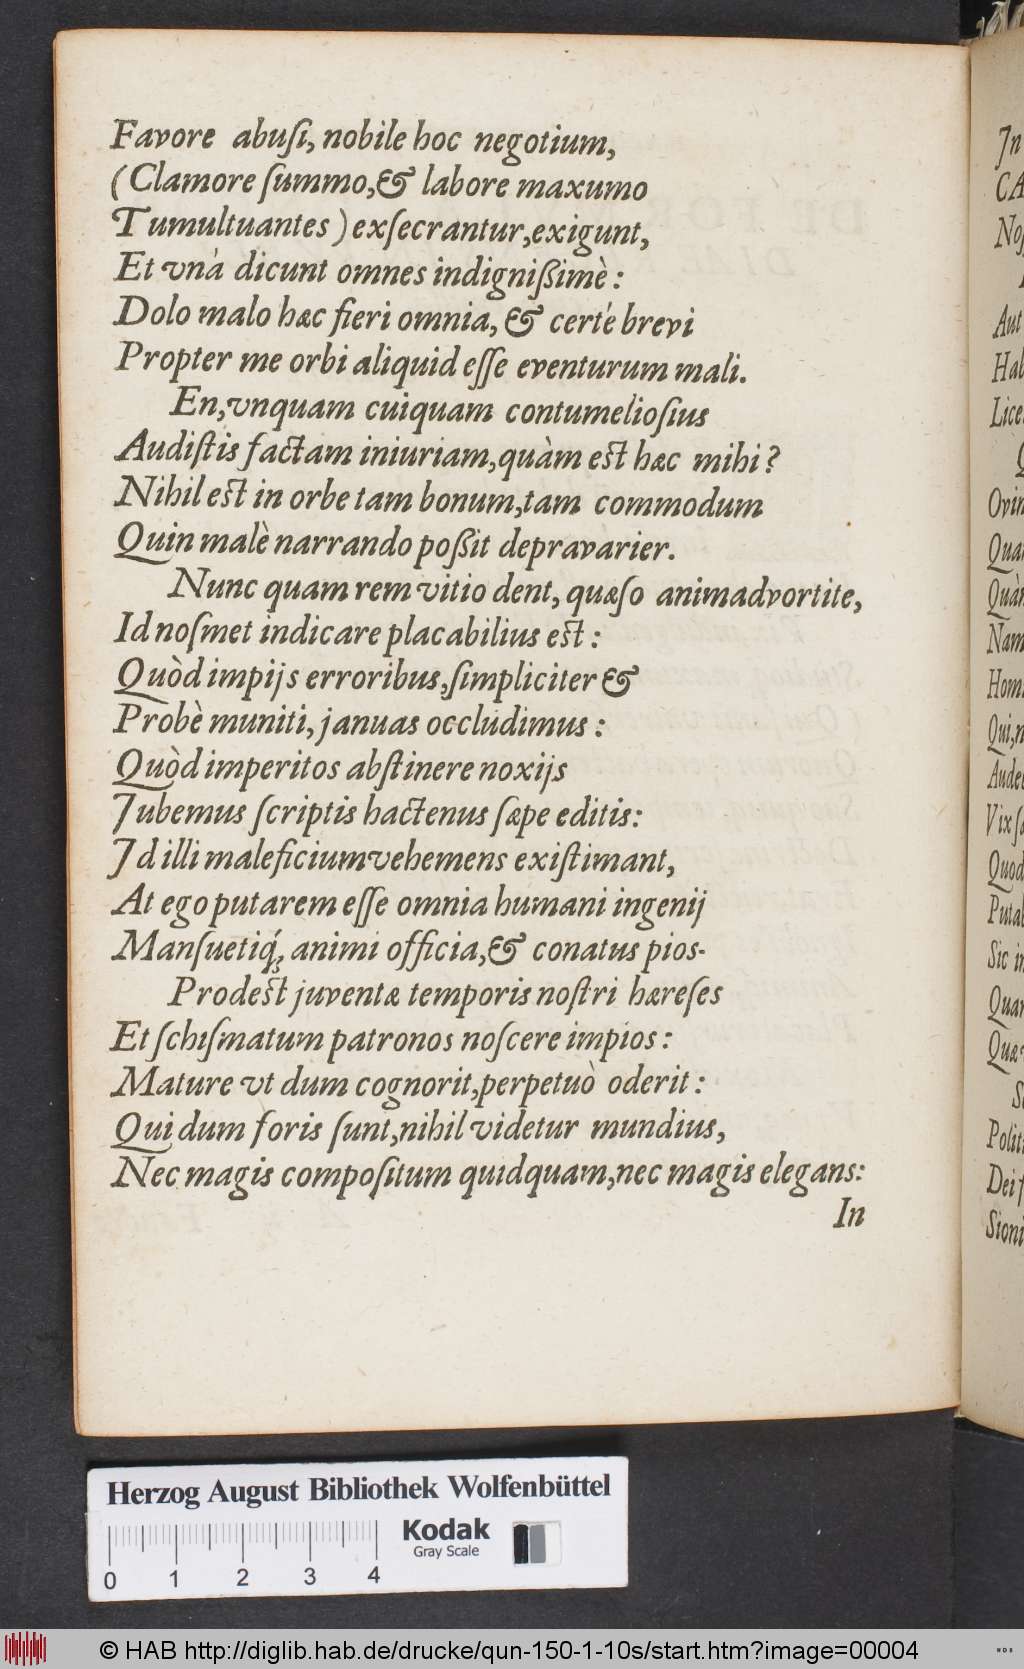 Favore abuſi, nobile hoc negotium,
(Clamore ſummo,& labore maxumo
Tumultuantes) exſecrantur,exigunt,
Et vnà dicunt omnes indignißimè:
Dolo malo hæc fieri omnia, & certè brevi
Propter me orbi aliquid eſſe eventurum mali.
En,vnquam cuiquam contumelioſius
Audiſtis factam iniuriam,quàm est hæc mihi?
Nihil est in orbe tam bonum,tam commodum
Quin malè narrando poßit depravarier.
Nunc quam rem vitio dent, quæſo animadvortite,
Id noſmet indicare placabilius est:
Quòd impijs erroribus,ſimpliciter &
Probè muniti, januas occludimus:
Quòd imperitos abſtinere noxijs
Jubemus ſcriptis hactenus ſæpe editis:
Jd illi maleficium vehemens exiſtimant,
At ego putarem eſſe omnia humani ingenij
Manſuetiq́; animi officia,& conatus pios.
Prodest juventæ temporis noſtri hæreſes
Et ſchiſmatum patronos noſcere impios:
Mature vt dum cognorit,perpetuò oderit:
Qui dum foris ſunt,nihil videtur mundius,
Nec magis compoſitum quidquam,nec magis elegans:
In
Jn
CA
Noſ
Aut
Hal
Lice
Q
Ovin
Qua
Quàn
Nam
Hom
Qui,n
Audee
Vix ſa
Quod
Putab
Sic in
Quan
Quæ
S
Polit
Dei f
Sioni
Herzog August Bibliothek Wolfenbüttel
Kodak
Gray Scale
0 1 2 3 4
© HAB http://diglib.hab.de/drucke/qun-150-1-10s/start.htm?image=00004